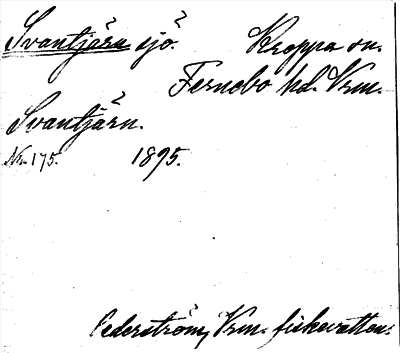 Svantjärn sjö. Kroppa sn.
Fernebo hd. Vrm.
Svantjärn.
Nr. 175. 1895.
Cederström, Vrm. fiskevatten.